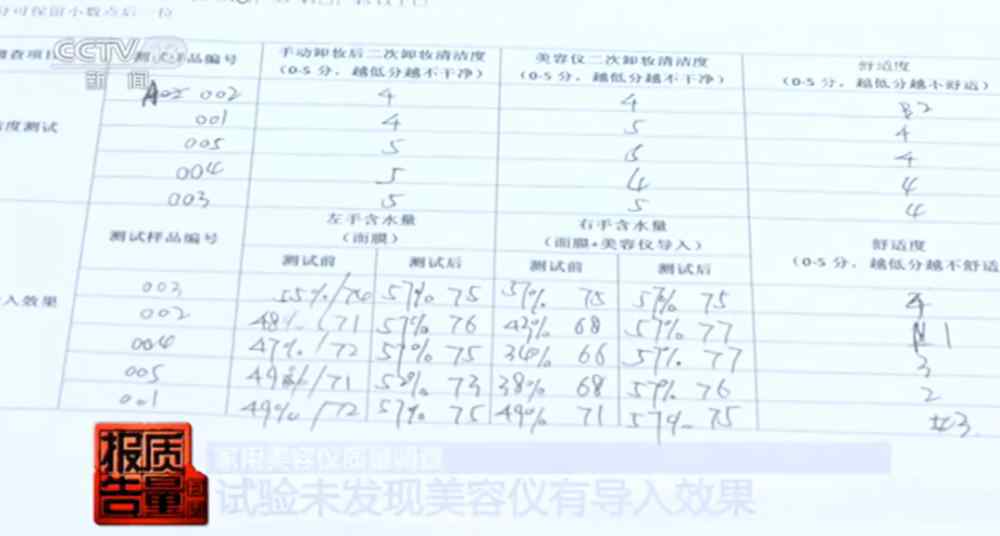 可保留小数点后一位
CCTV 13
新闻
测试样品编号 手动卸妆后二次卸妆清洁度 美容仪二次卸妆清洁度 舒适度
(0-5 分，越低分越不干净) (0-5 分，越低分越不干净) (0-5 分，越低分越不舒适)
002 4 4 2
度测试 001 4 5 4
005 5 5 4
004 5 4 4
003 5 5 4
测试样品编号 左手含水量 右手含水量 舒适度
(面膜) (面膜+美容仪导入) (0-5 分，越低分越不舒适
测试前 测试后 测试前 测试后
入效果 003 55%/ 57% 75 57% 75 57% 75 4
002 48%/71 57% 76 42% 68 57% 77 1
004 47%/72 57% 75 34% 66 57% 77 3
005 /71 73 38% 68 57% 76 2
001 49%/72 57% 75 49% 71 57% 75 3
质量报告
家用美容仪质量调查
试验未发现美容仪有导入效果